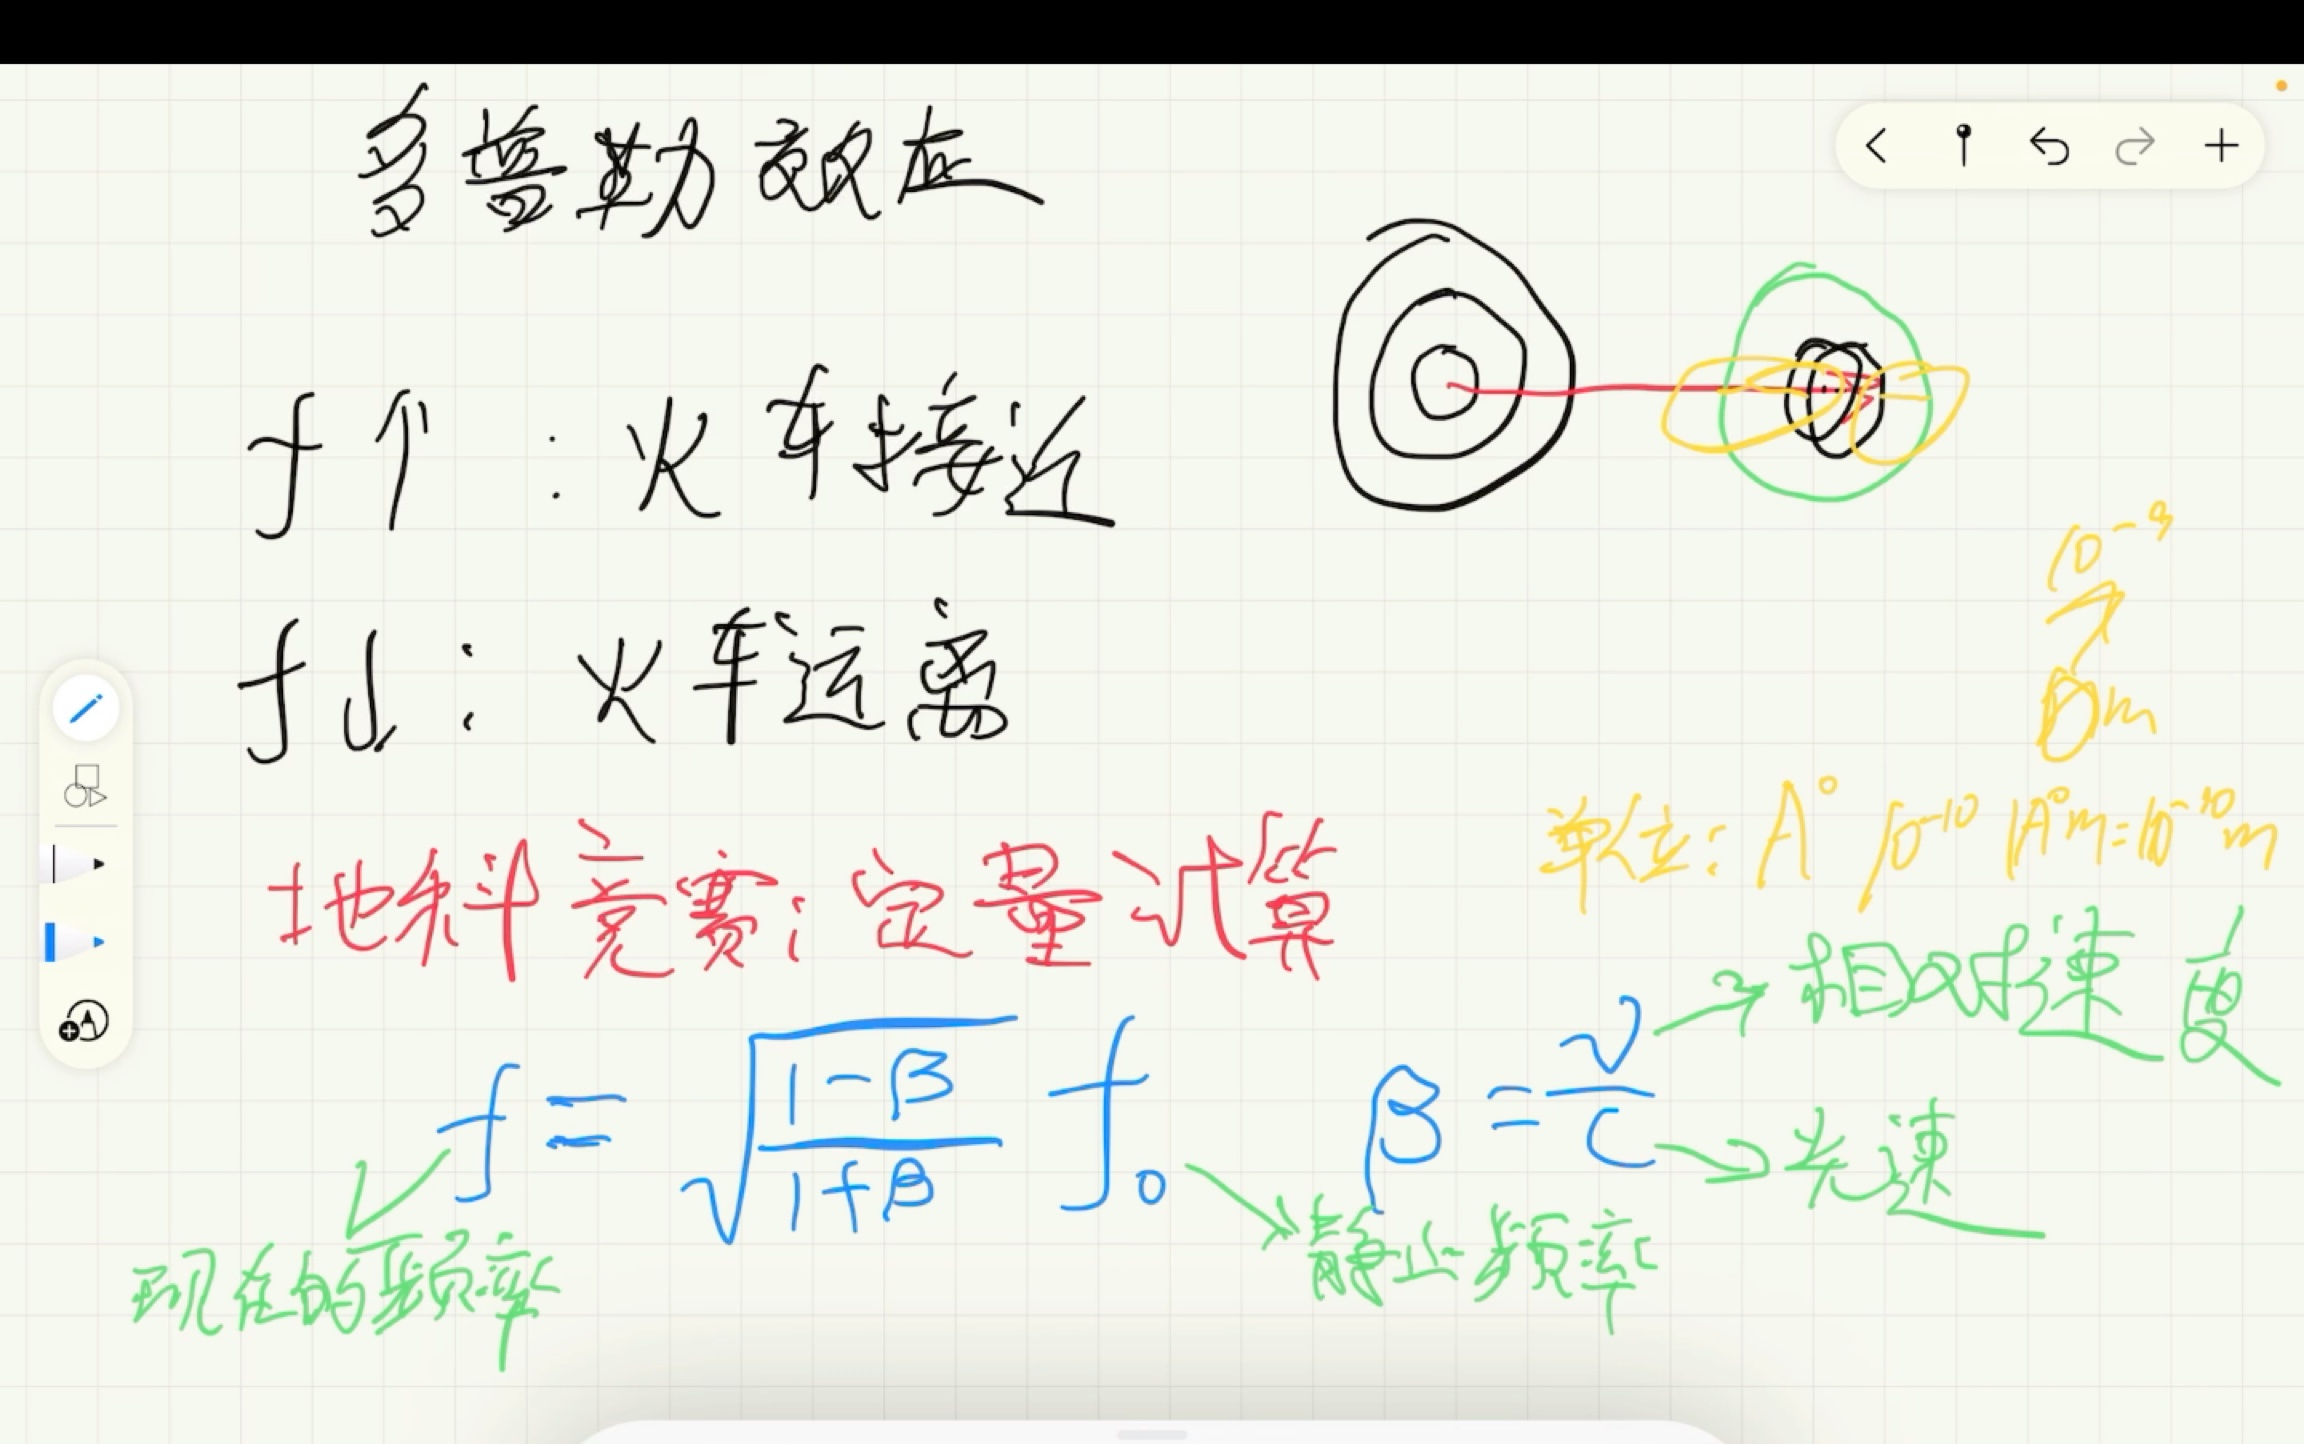 多普勒效应
f↑：火车接近
f↓：火车远离
10⁻⁹
nm
单位：A° 10⁻¹⁰ 1A°m=10⁻¹⁰m
地科竞赛：定量计算
相对速度
f = √((1-β)/(1+β)) f₀  β = v/c
光速
现在的频率
静止频率